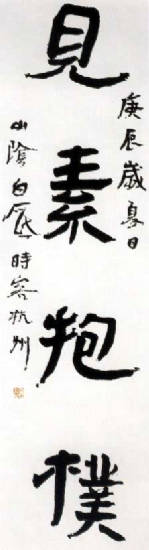 見素抱樸
庚辰歲夏日
山陰白辰時客杭州